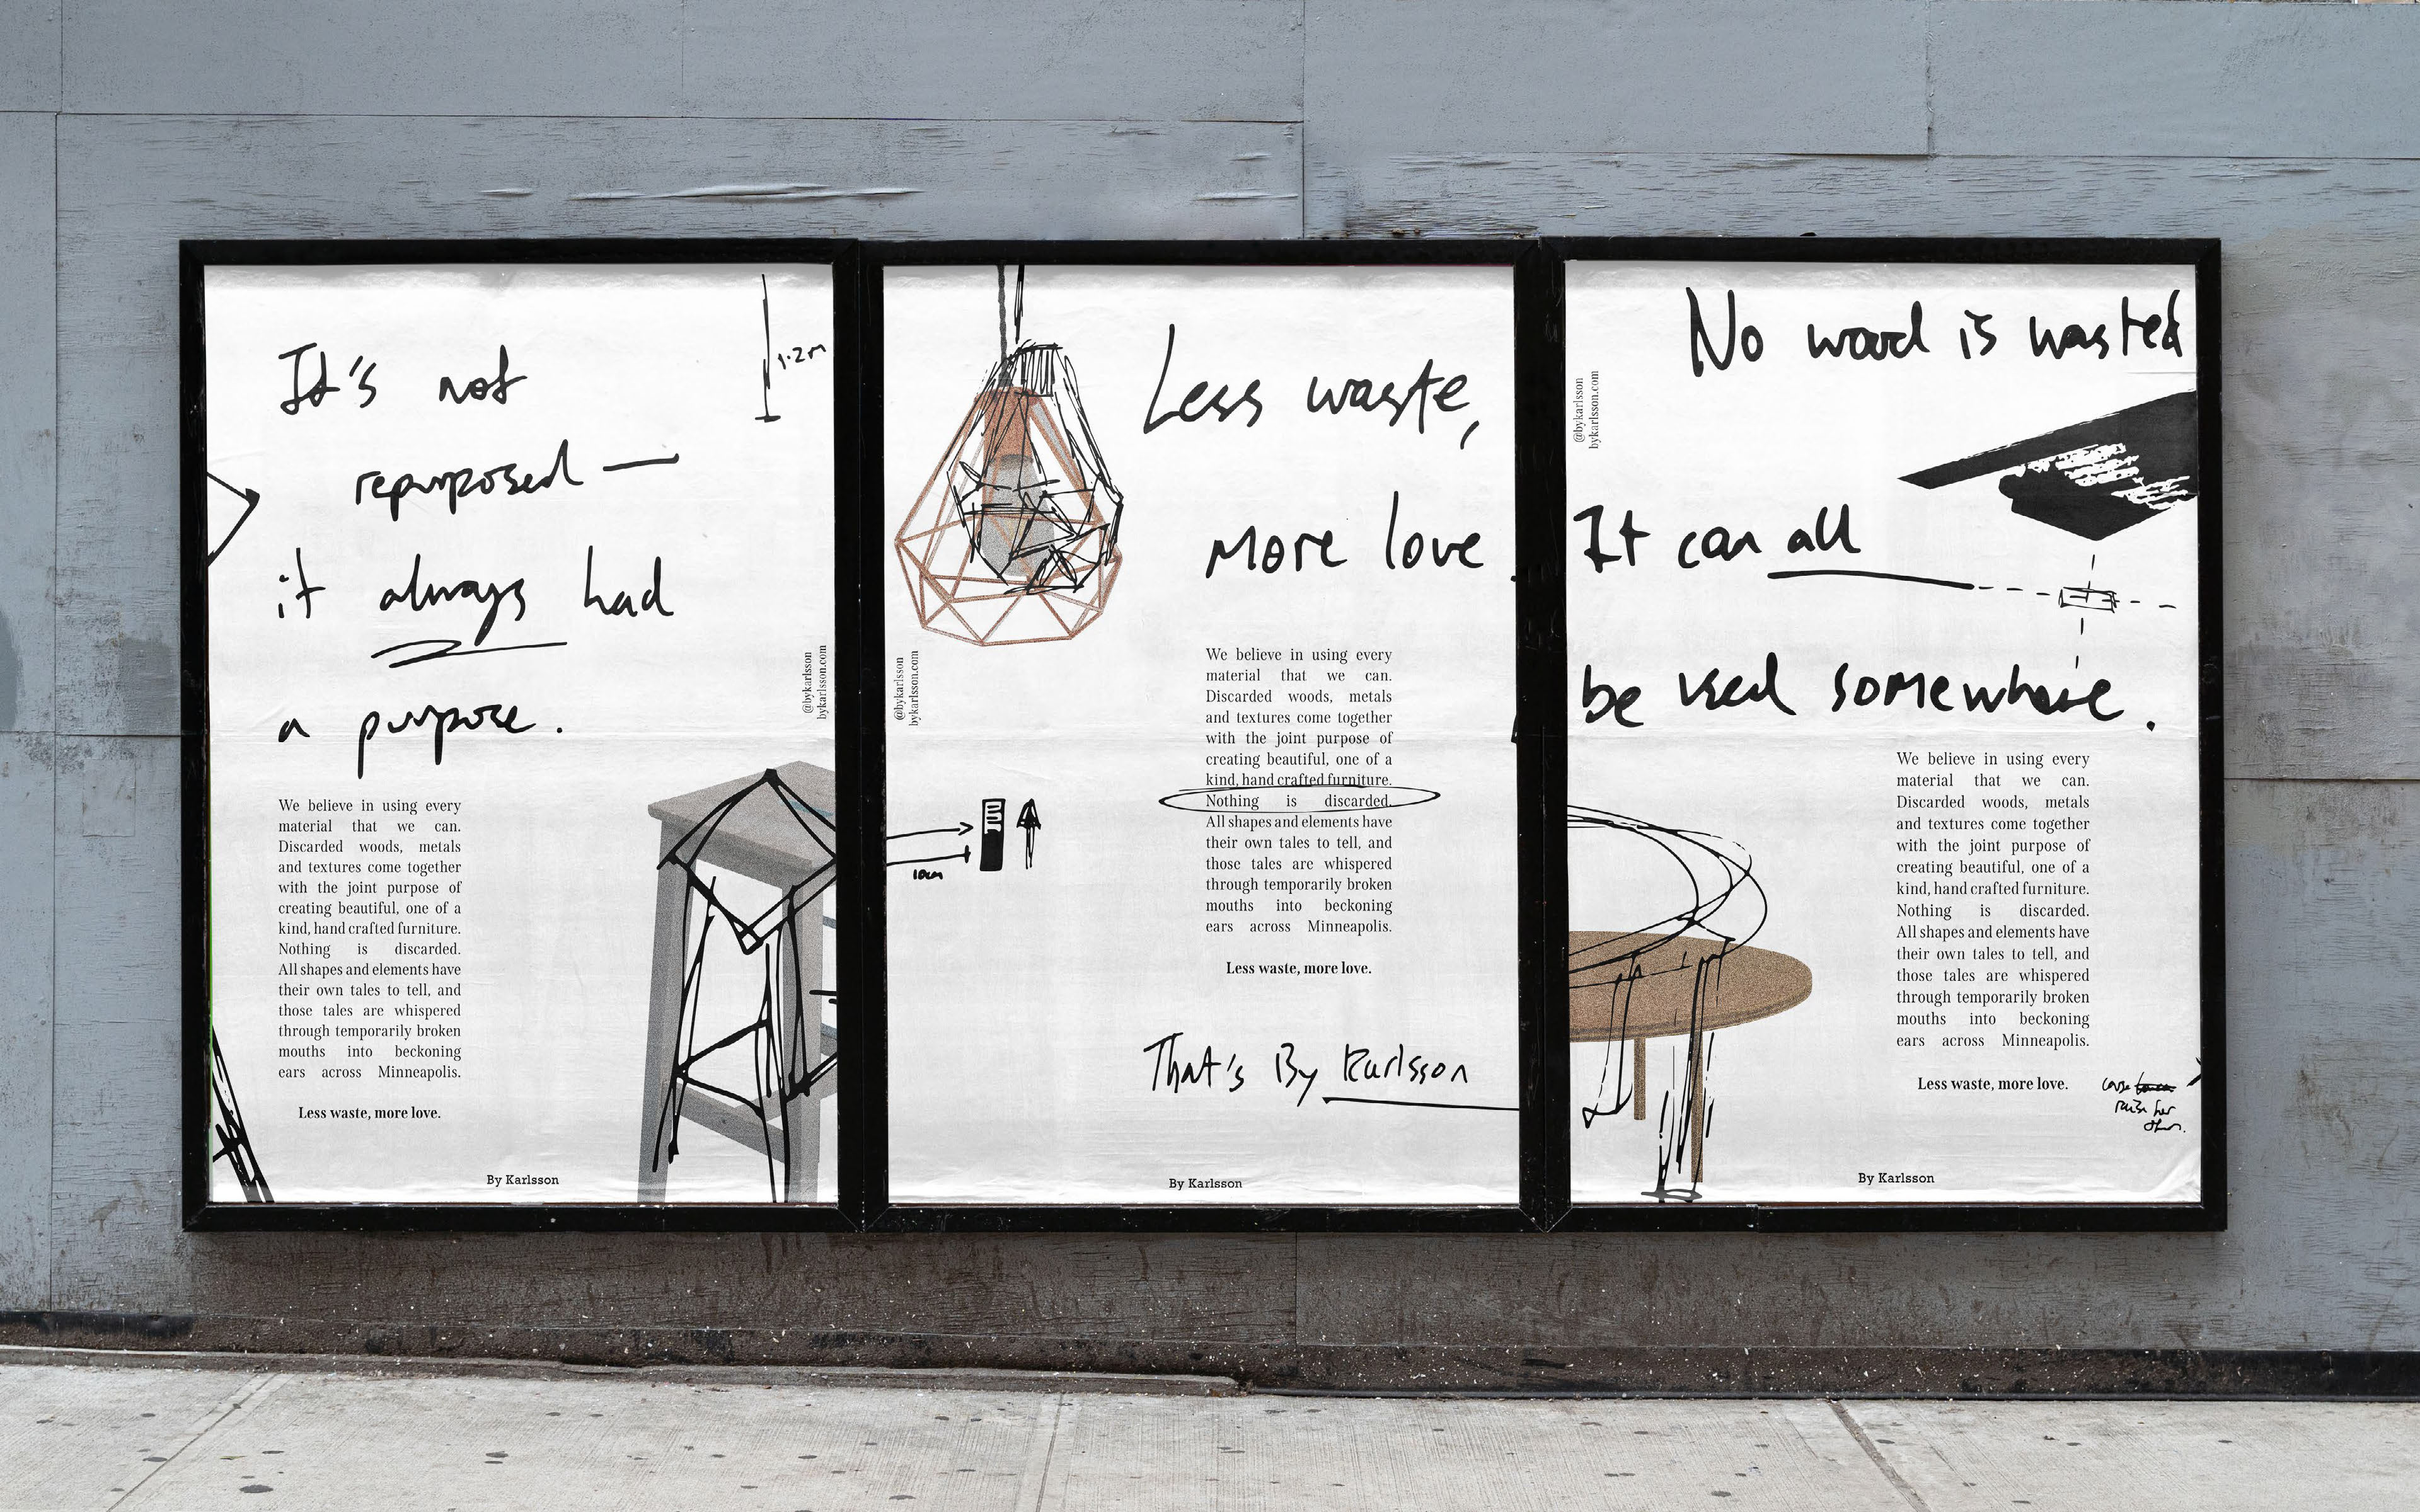 It's not
repurposed —
it always had
a purpose.
1.2m
@bykarlsson
bykarlsson.com
We believe in using every
material that we can.
Discarded woods, metals
and textures come together
with the joint purpose of
creating beautiful, one of a
kind, hand crafted furniture.
Nothing is discarded.
All shapes and elements have
their own tales to tell, and
those tales are whispered
through temporarily broken
mouths into beckoning
ears across Minneapolis.
Less waste, more love.
By Karlsson
Less waste,
more love.
@bykarlsson
bykarlsson.com
We believe in using every
material that we can.
Discarded woods, metals
and textures come together
with the joint purpose of
creating beautiful, one of a
kind, hand crafted furniture.
Nothing is discarded.
All shapes and elements have
their own tales to tell, and
those tales are whispered
through temporarily broken
mouths into beckoning
ears across Minneapolis.
Less waste, more love.
10cm
That's By Karlsson
By Karlsson
No wood is wasted
@bykarlsson
bykarlsson.com
It can all
be used somewhere.
We believe in using every
material that we can.
Discarded woods, metals
and textures come together
with the joint purpose of
creating beautiful, one of a
kind, hand crafted furniture.
Nothing is discarded.
All shapes and elements have
their own tales to tell, and
those tales are whispered
through temporarily broken
mouths into beckoning
ears across Minneapolis.
Less waste, more love.
By Karlsson